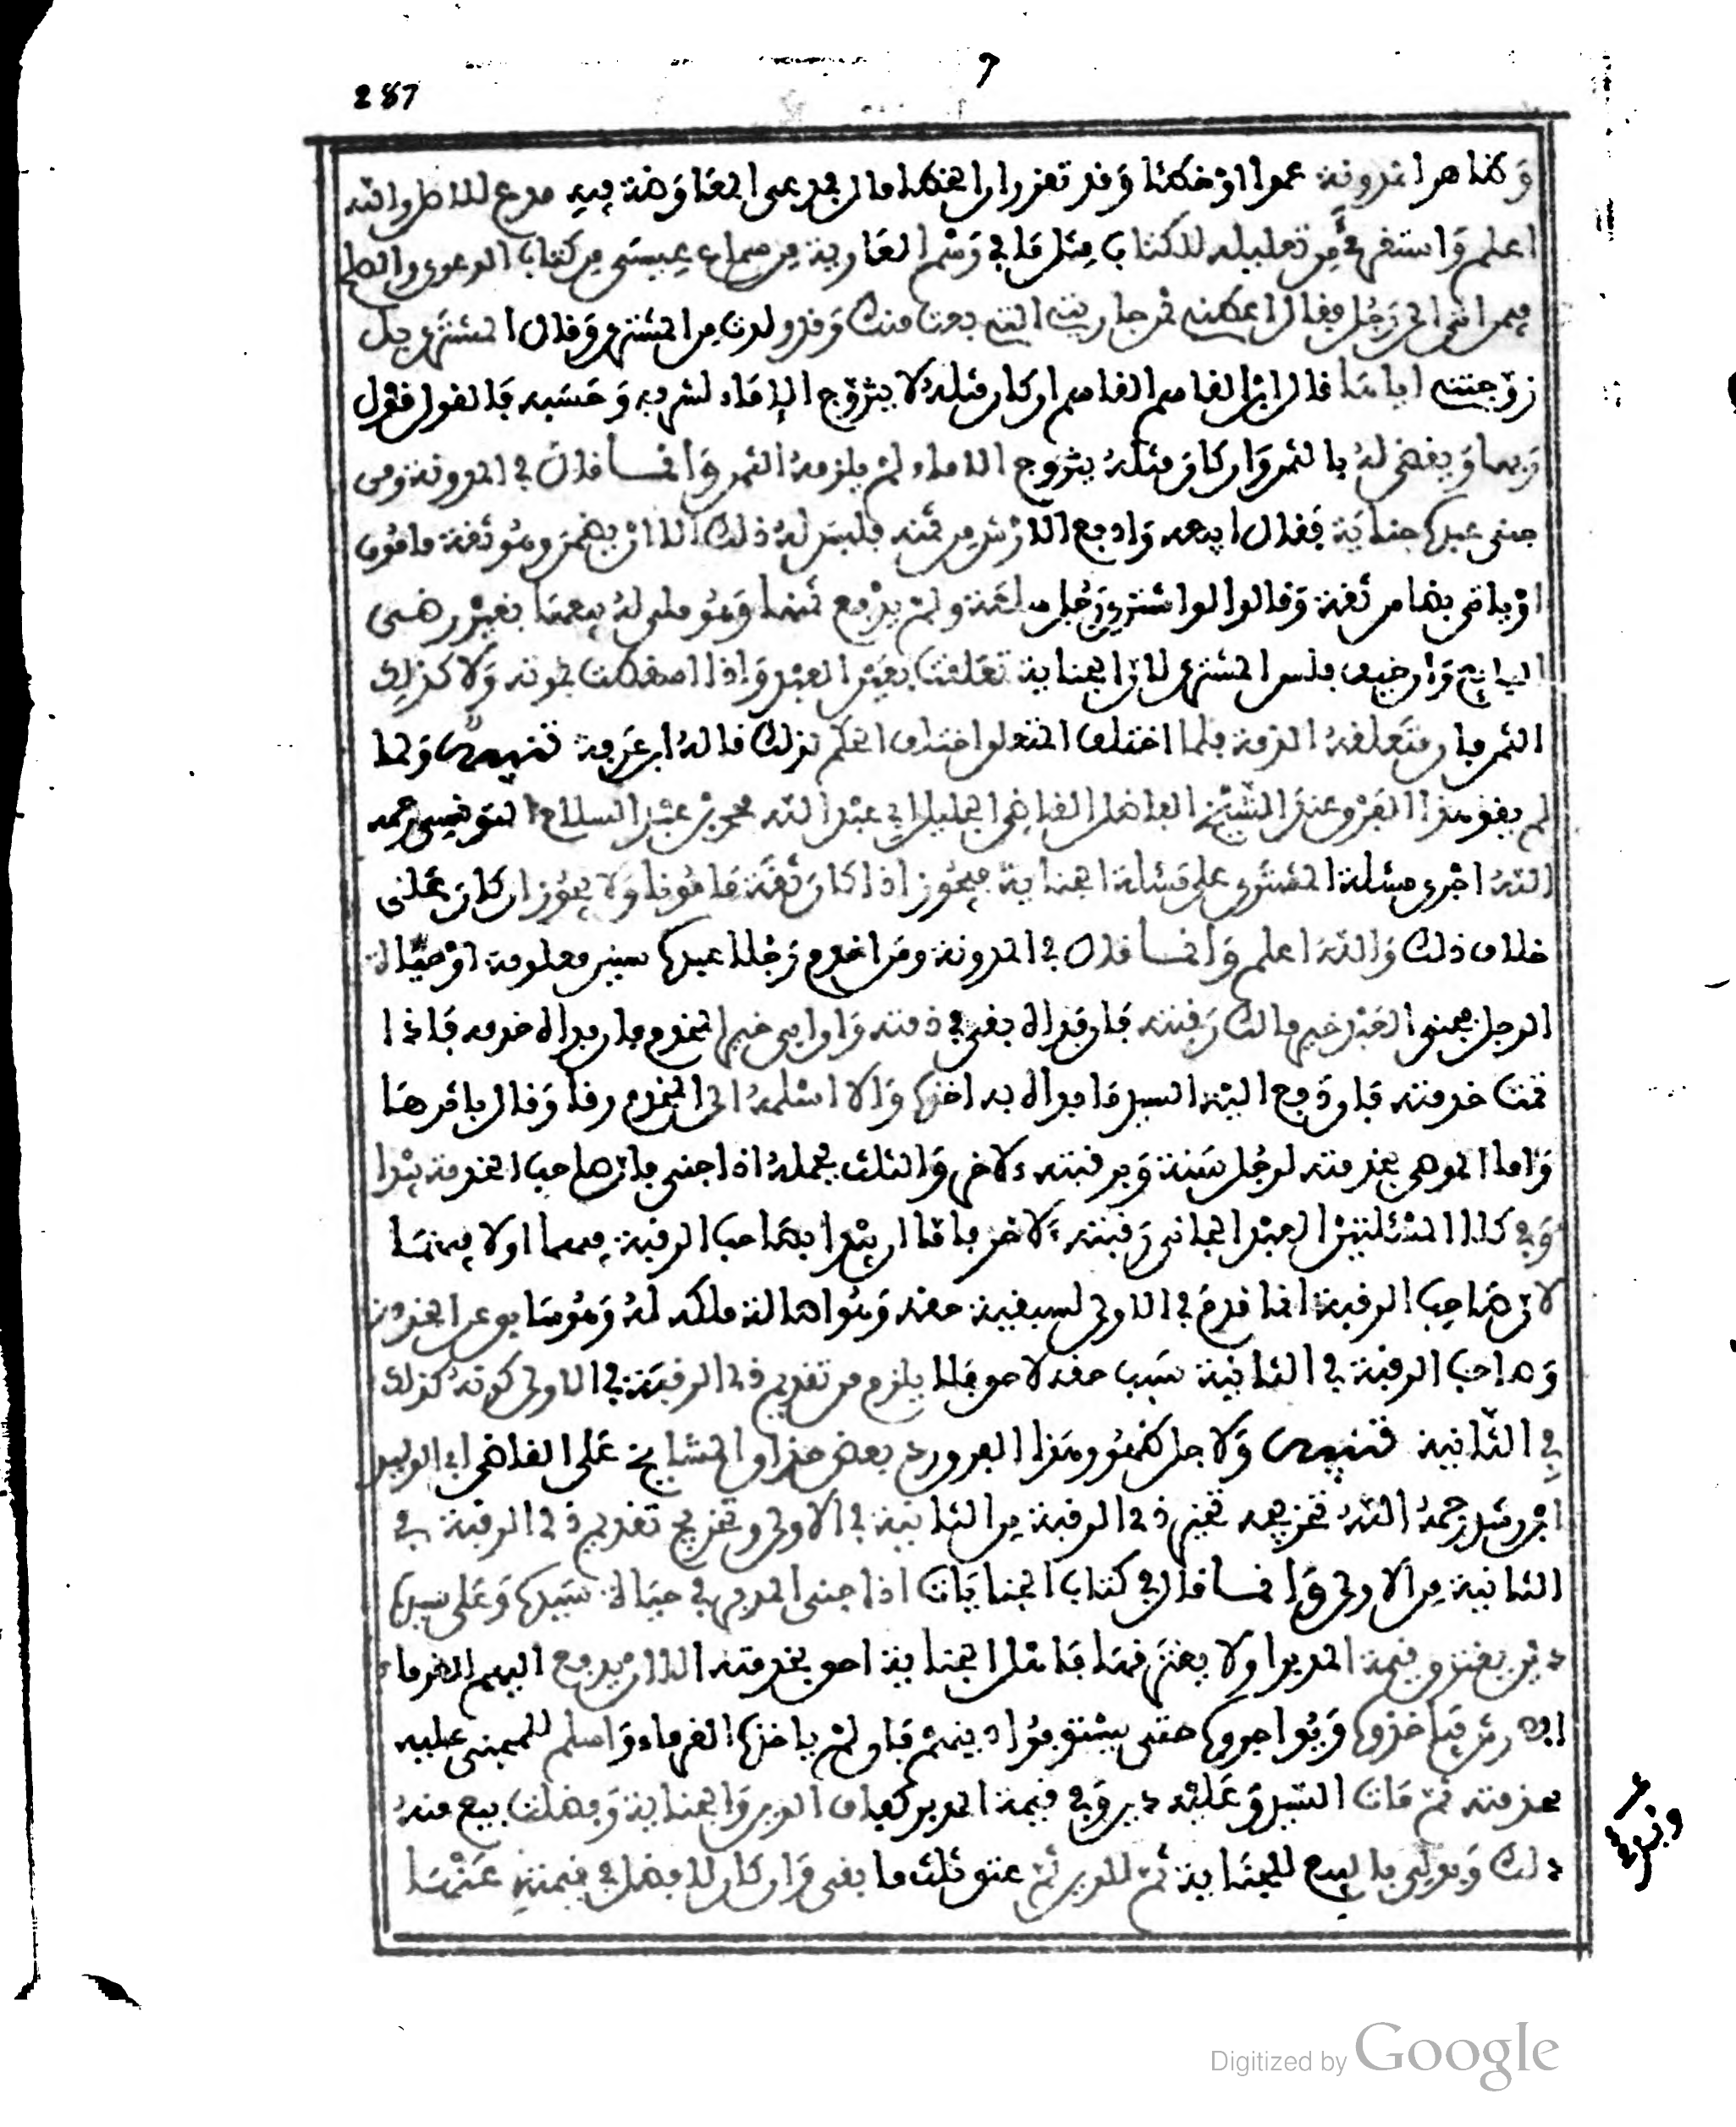 287
وظاهر المدونة عمدا أو خطئا وقد تقرر أن الخطأ مال فدعوى المعاوضة فيه مدع للاصل والله
اعلم واستقرئ من تعليله للكتاب مثل ما في رسم العارية من سماع عيسى من كتاب الدعوى والصلح
فيمن اتى الى رجل فقال اعطني ثمن جاريتي التي بعت منك وقد ولدت من المشتري وقال المشتري بل
زوجتنيها قال ابن القاسم ان كان مثله لا يتزوج الاماء لشرفه وحسبه فالقول قول
ربها ويقضى له بالثمن وان كان مثله يتزوج الاماء لم يلزمه الثمن وإنما قال في المدونة ومن
جنى عبده جناية فقال ابيعه وادفع الارش من ثمنه فليس له ذلك الا ان يضمن وهو ثقة مامون
او ياتي بضامن ثقة وقالوا لو اشترى رجل سلعة ولم يدفع ثمنها وهو ملي له بيعها بغير رضى
البايع وان خيف فلس المشتري لان الجناية تعلقت بعين العبد ولذا اسقطت بموته ولا كذلك
الثمن فان متعلقه الذمة فلما اختلف المتعلق اختلف الحكم لذلك قاله ابن عرفة تنبيه ولما
لم يقو هذا الفرق عند الشيخ الفاضل القاضي الجليل ابي عبد الله محمد بن عبد السلام التونسي رحمه
الله اجرى مسئلة المشتري على مسئلة الجناية فيجوز اذا كان ثقة مامونا ولا يجوز ان كان على
خلاف ذلك والله اعلم وإنما قال في المدونة ومن اخدم رجلا عبده سنين معلومة او حياة
الرجل فجنى العبد خير مالك رقبته فان فداه بقي في خدمته وان ابى خير المخدم فان فداه خدمه فاذا
تمت خدمته فان دفع اليه السيد ما فداه به اخذه والا اسلمه الى المخدم رقا وقال باثرها
واما الموصى بخدمته لرجل سنة وبرقبته ءلاخر والثلث يحمله اذا جنى فان صاحب الخدمة يبدا
وفي كلا المسئلتين العبد الجاني رقبته ءلاخر فاما ان يبدا بصاحب الرقبة فيهما او لا فيهما
لان صاحب الرقبة انما قدم في الاولى لسبقية حقه وهو اصالة ملكه له وهو سابق عن الخدمة
وصاحب الرقبة في الثانية سبب حقه لاحق فلا يلزم من تقديم ذي الرقبة في الاولى كونه كذلك
في الثانية تنبيه ولاجل ظهور هذا الفرق رد بعض حذاق المشايخ على القاضي ابي الوليد
ابن رشد رحمه الله تخريجه تخيير ذي الرقبة من الثانية في الاولى وتخريج تقديم ذي الرقبة في
الثانية من الاولى وإنما قال في كتاب الجنايات اذا جنى المدبر في حياة سيده وعلى سيده
دين يغترق قيمة المدبر او لا يغترقها فاهل الجناية احق بخدمته الا ان يدفع اليهم الغرماء
الارش فياخذوه ويؤاجروه حتى يستوفوا دينهم فان لم ياخذه الغرماء واسلم للمجني عليه
بخدمته ثم مات السيد وعليه دين وفي قيمة المدبر كفاف الدين والجناية وفضلت بيع منه
وبقي
ذلك ويولى بالبيع للجناية ثم للدين ثم عتق ثلث ما بقي وان كان لا فضل في قيمته عنهما
Digitized by Google